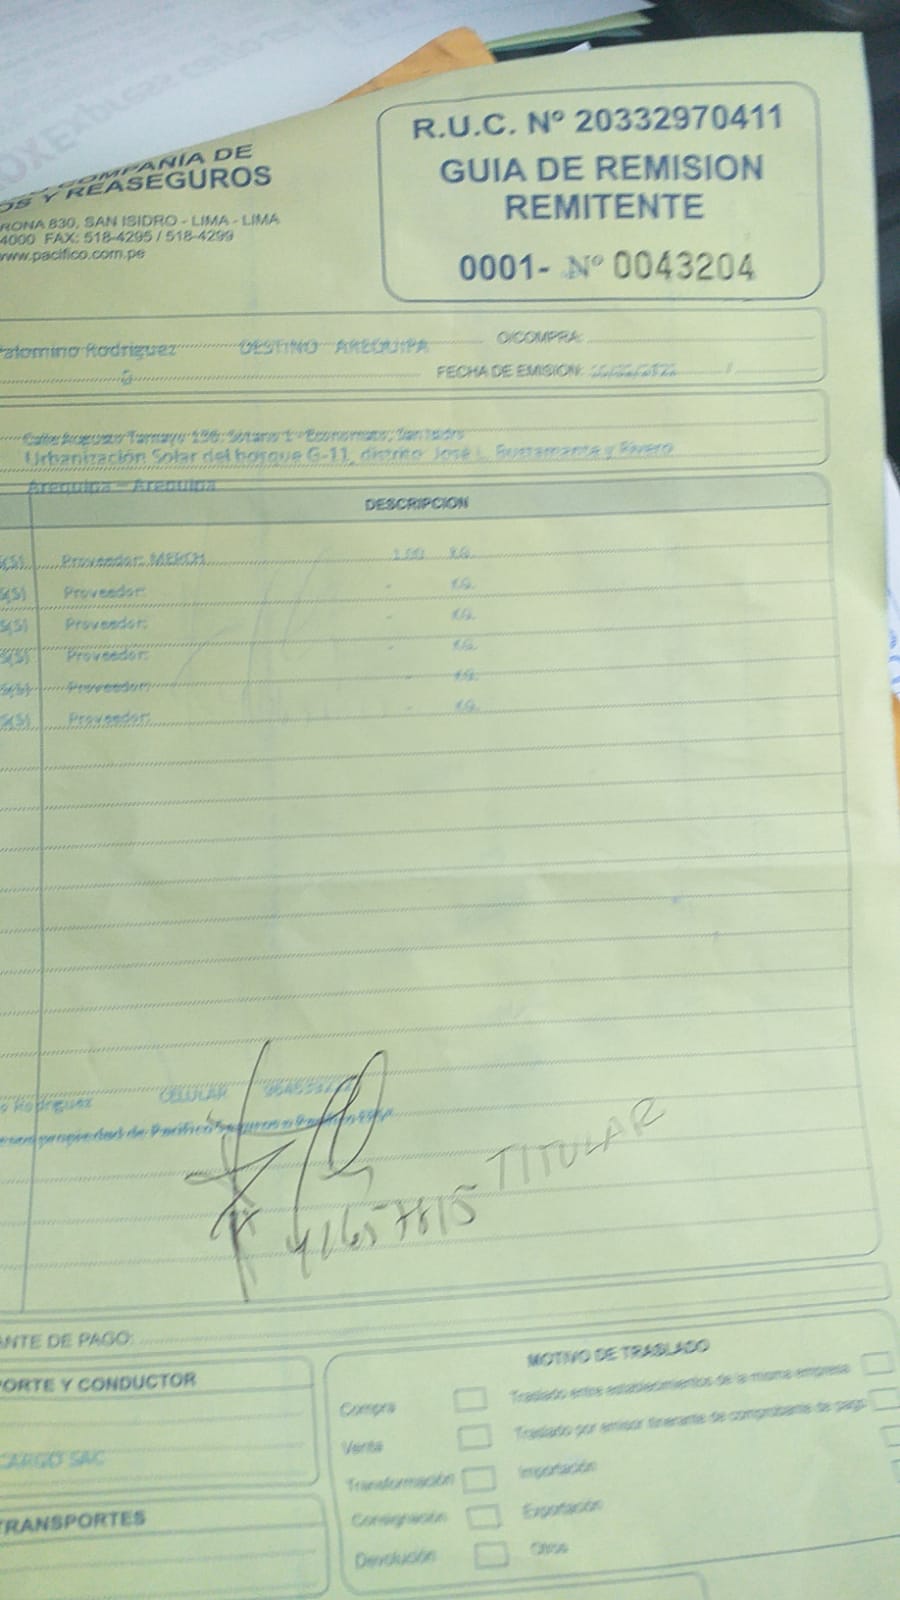 Express
COMPAÑIA DE
OS Y REASEGUROS
RONA 830, SAN ISIDRO - LIMA - LIMA
4000 FAX: 518-4295 / 518-4299
www.pacifico.com.pe
R.U.C. Nº 20332970411
GUIA DE REMISION
REMITENTE
0001- Nº 0043204
Palomino Rodriguez DESTINO AREQUIPA
O/COMPRA:
FECHA DE EMISION:
Calle Augusto Tamayo Sotano 1 - Economato, San Isidro
Urbanización Solar del bosque G-11, distrito José L. Bustamante y Rivero
Arequipa - Arequipa
DESCRIPCION
S(S) Proveedor: MERCH 1.00 KG.
S(S) Proveedor: - KG.
S(S) Proveedor: - KG.
S(S) Proveedor: - KG.
S(S) Proveedor: - KG.
S(S) Proveedor: - KG.
o Rodriguez CELULAR
propiedad de Pacifico Seguros o Pacifico
TITULAR
ANTE DE PAGO:
PORTE Y CONDUCTOR
CARGO SAC
TRANSPORTES
MOTIVO DE TRASLADO
Compra
Venta
Transformación
Consignación
Devolución
Traslado entre establecimientos de la misma empresa
Traslado por emisor itinerante de comprobante de pago
Importación
Exportación
Otros